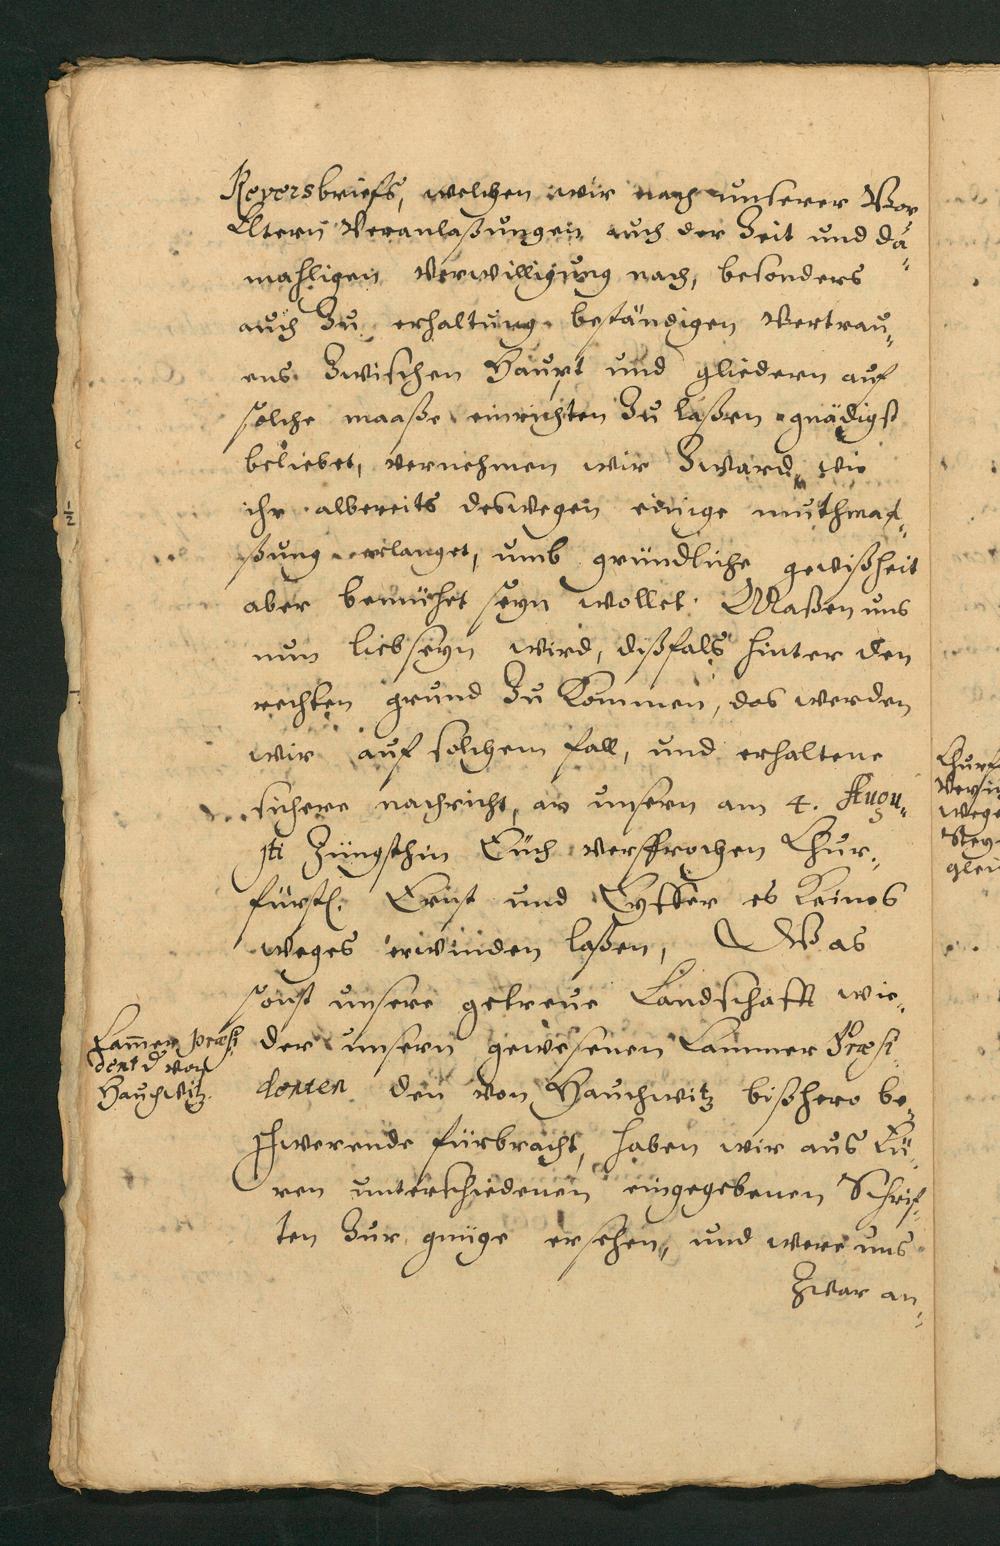 Reversbriefs, welchen wir nach unserer Vor
Eltern Veranlaßungen auch der Zeit und da¬
mahligen Verwilligung nach, besonders
auch Zu erhaltung beständigen Vertrau¬
ens Zwischen Haupt und gliedern auf
solche maaße einrichten Zu laßen gnädigst
beliebet, vernehmen wir Zward, wie
ihr albereits deswegen einige muthmaa¬
ßung erlanget, umb gründliche gewißheit
aber bemühet seyn wollet. Maßen uns
nun lieb seyn wird, dißfals hinter den
rechten grund Zu kommen, das werden
wir auf solchem fall, und erhaltene
sichere nachricht, an unsern am 4. Augu¬
sti Jüngsthin Euch versprochen Chur¬
fürstl. Ernst und Eyffer es keines
weges erwinden laßen, Was
sonst unsere getreue Landschafft wie¬
der unsern gewesenen Cammer Præsi
denten den von Hauchwitz bißhero be¬
schwerende fürbracht, haben wir aus Eü¬
ren unterschiedenen eingegebenen Schrif¬
ten Zur gnüge ersehen, und were uns
Zwar an¬
Cammer præsi
dent d von
Hauchwitz.
Churf
wege
glei